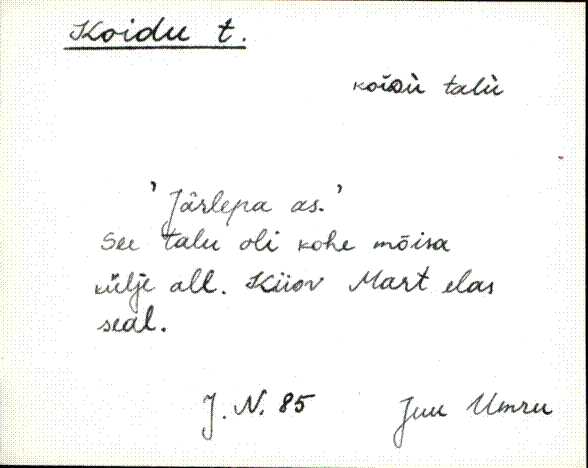 Koidu t.
koiDù talù
'Järlepa as.'
See talu oli kohe mõisa
külje all. Kiiov Mart elas
seal.
J. N. 85 Juu Umru